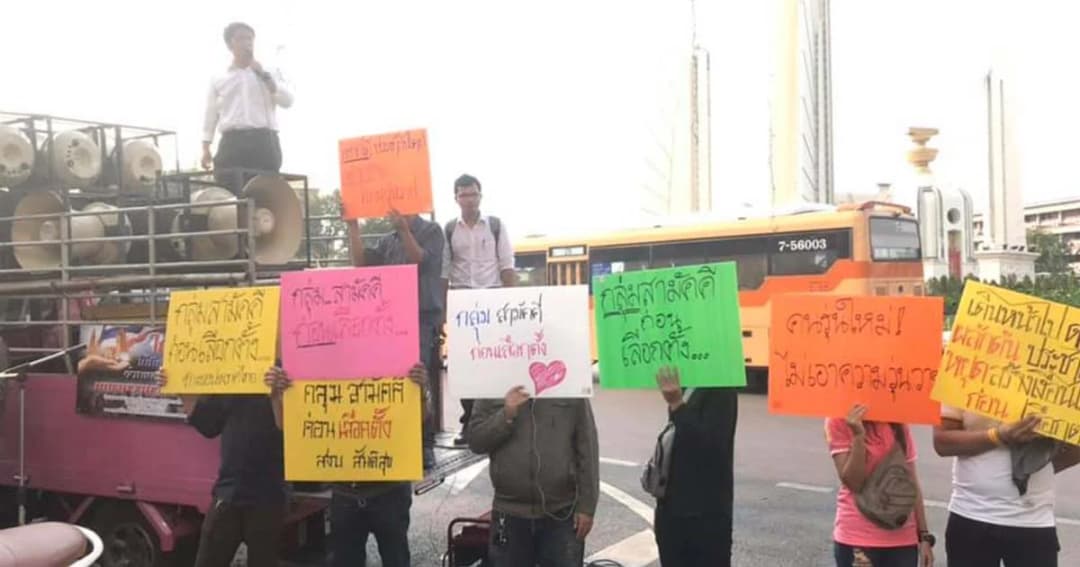 กลุ่มสามัคคี
ก่อนเลือกตั้ง
กลุ่ม..สามัคคี
ก่อนเลือกตั้ง...
กลุ่ม สามัคคี
ก่อน เลือกตั้ง
สงบ สันติสุข
กลุ่ม สามัคคี
ก่อนเลือกตั้ง
กลุ่มสามัคคี
ก่อน
เลือกตั้ง...
7-56003
คนรุ่นใหม่!
ไม่เอาความวุ่นวาย
เดินหน้าไป
ผลักดัน ประชา
หยุดสร้างเงื่อนไข
ก่อน เลือกตั้ง